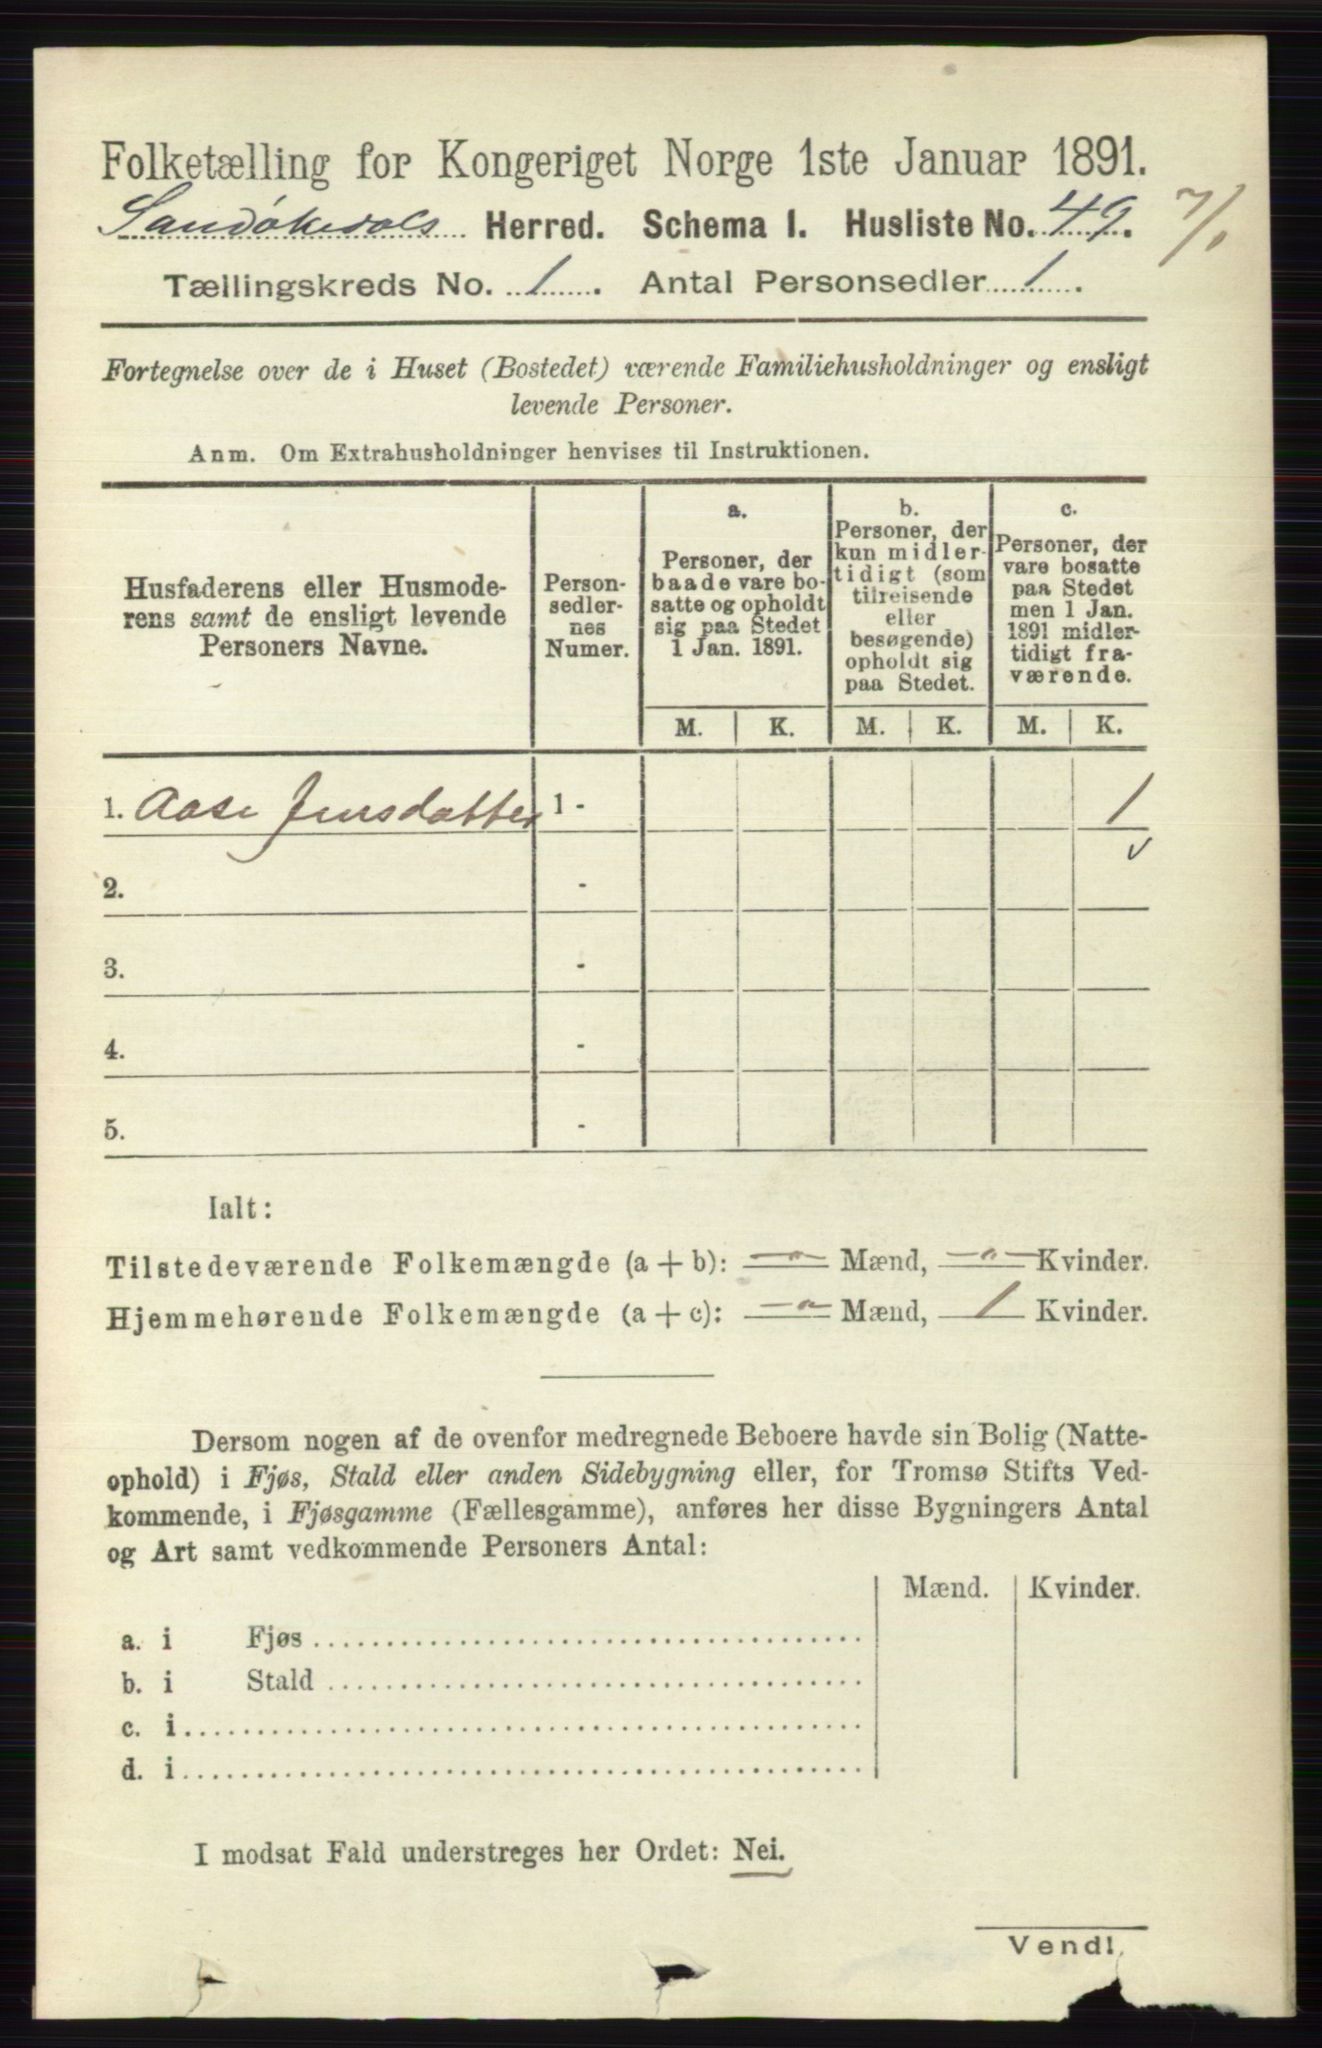 Folketælling for Kongeriget Norge 1ste Januar 1891.
Sandøkedals Herred. Schema I. Husliste No. 49. 7/1
Tællingskreds No. 1. Antal Personsedler 1.
Fortegnelse over de i Huset (Bostedet) værende Familiehusholdninger og ensligt
levende Personer.
Anm. Om Extrahusholdninger henvises til Instruktionen.
Husfaderens eller Husmode-
rens samt de ensligt levende
Personers Navne.
Person-
sedler-
nes
Numer.
a.
Personer, der
baade vare bo-
satte og opholdt
sig paa Stedet
1 Jan. 1891.
b.
Personer, der
kun midler-
tidigt (som
tilreisende
eller
besøgende)
opholdt sig
paa Stedet.
c.
Personer, der
vare bosatte
paa Stedet
men 1 Jan.
1891 midler-
tidigt fra-
værende.
M. K. M. K. M. K.
1. Aase Jensdatter 1 - 1
2. -
3. -
4. -
5. -
Ialt:
Tilstedeværende Folkemængde (a + b): —"— Mænd, —"— Kvinder.
Hjemmehørende Folkemængde (a + c): —"— Mænd, 1 Kvinder.
Dersom nogen af de ovenfor medregnede Beboere havde sin Bolig (Natte-
ophold) i Fjøs, Stald eller anden Sidebygning eller, for Tromsø Stifts Ved-
kommende, i Fjøsgamme (Fællesgamme), anføres her disse Bygningers Antal
og Art samt vedkommende Personers Antal:
Mænd. Kvinder.
a. i Fjøs
b. i Stald
c. i
d. i
I modsat Fald understreges her Ordet: Nei.
Vend!